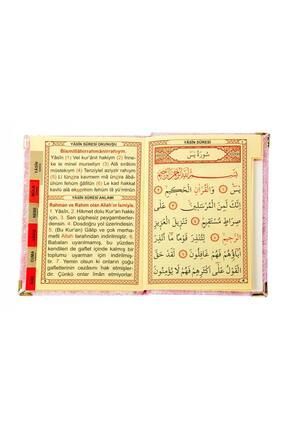 YÂSİN SÛRESİ OKUNUŞU
Bismillâhirrahmânirrahîym.
Yâsîn (1) Vel kur'ânil hakiym (2) İnne-
ke le minel murseliyn (3) Alâ sırâtım
müstekıym (4) Tenziylel aziyzir rahıym
(5) Li tünzira kavmem mâ ünzira âbâü-
hüm fehüm ğâfilûn (6) Le kad hakkal
kavlü alâ ekserihim fehüm lâ yü'minûn
YÂSİN SÛRESİ ANLAMI
Rahman ve Rahim olan Allah'ın ismiyle.
1. Yâsîn, 2. Hikmet dolu Kur'an hakkı
için, 3. Sen şüphesiz peygamberler-
densin. 4. Dosdoğru yol üzerindesin.
5. (Bu Kur'an) Gâlip ve çok merha-
metli Allah tarafından indirilmiştir. 6.
Babaları uyarılmamış, bu yüzden
kendileri de gaflet içinde kalmış bir
toplumu uyarman için indirilmiştir.
7. Yemin olsun ki onların çoğu
gafletlerinin cezasını hak etmişler-
dir. Çünkü onlar îman etmiyorlar.
YÂSİN SÛRESİ
سُورَةُ يٰسٓ
بِسْمِ اللّٰهِ الرَّحْمٰنِ الرَّحِيمِ
يٰسٓ وَالْقُرْاٰنِ الْحَكِيمِ
اِنَّكَ لَمِنَ الْمُرْسَلِينَ عَلٰى
صِرَاطٍ مُسْتَقِيمٍ تَنْزِيلَ الْعَزِيزِ
الرَّحِيمِ لِتُنْذِرَ قَوْمًا مَا اُنْذِرَ
اٰبَاؤُهُمْ فَهُمْ غَافِلُونَ لَقَدْ حَقَّ
الْقَوْلُ عَلٰى اَكْثَرِهِمْ فَهُمْ لَا يُؤْمِنُونَ